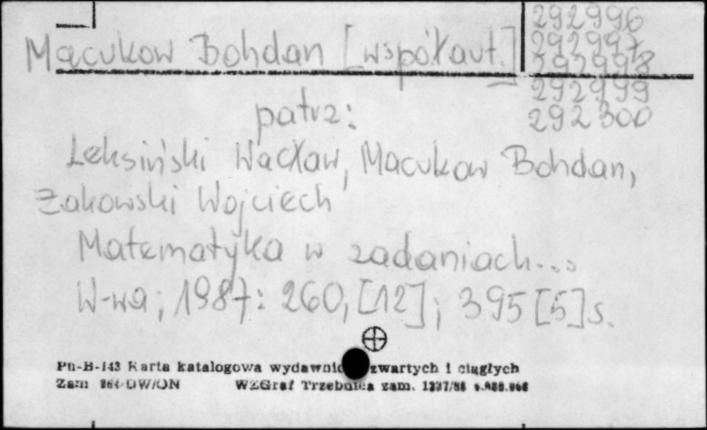 292996
Mącukow Bohdan [współaut.] 292997
292998
292999
patrz: 292300
Leksiński Wacław, Macukow Bohdan,
Żakowski Wojciech
Matematyka w zadaniach...
W-wa, 1987: 260, [12]; 395 [5] s.
Pu-B-143 Karta katalogowa wydawnictw zwartych i ciągłych
Zam DW/ON WZGraf Trzebnica zam. 1397/86